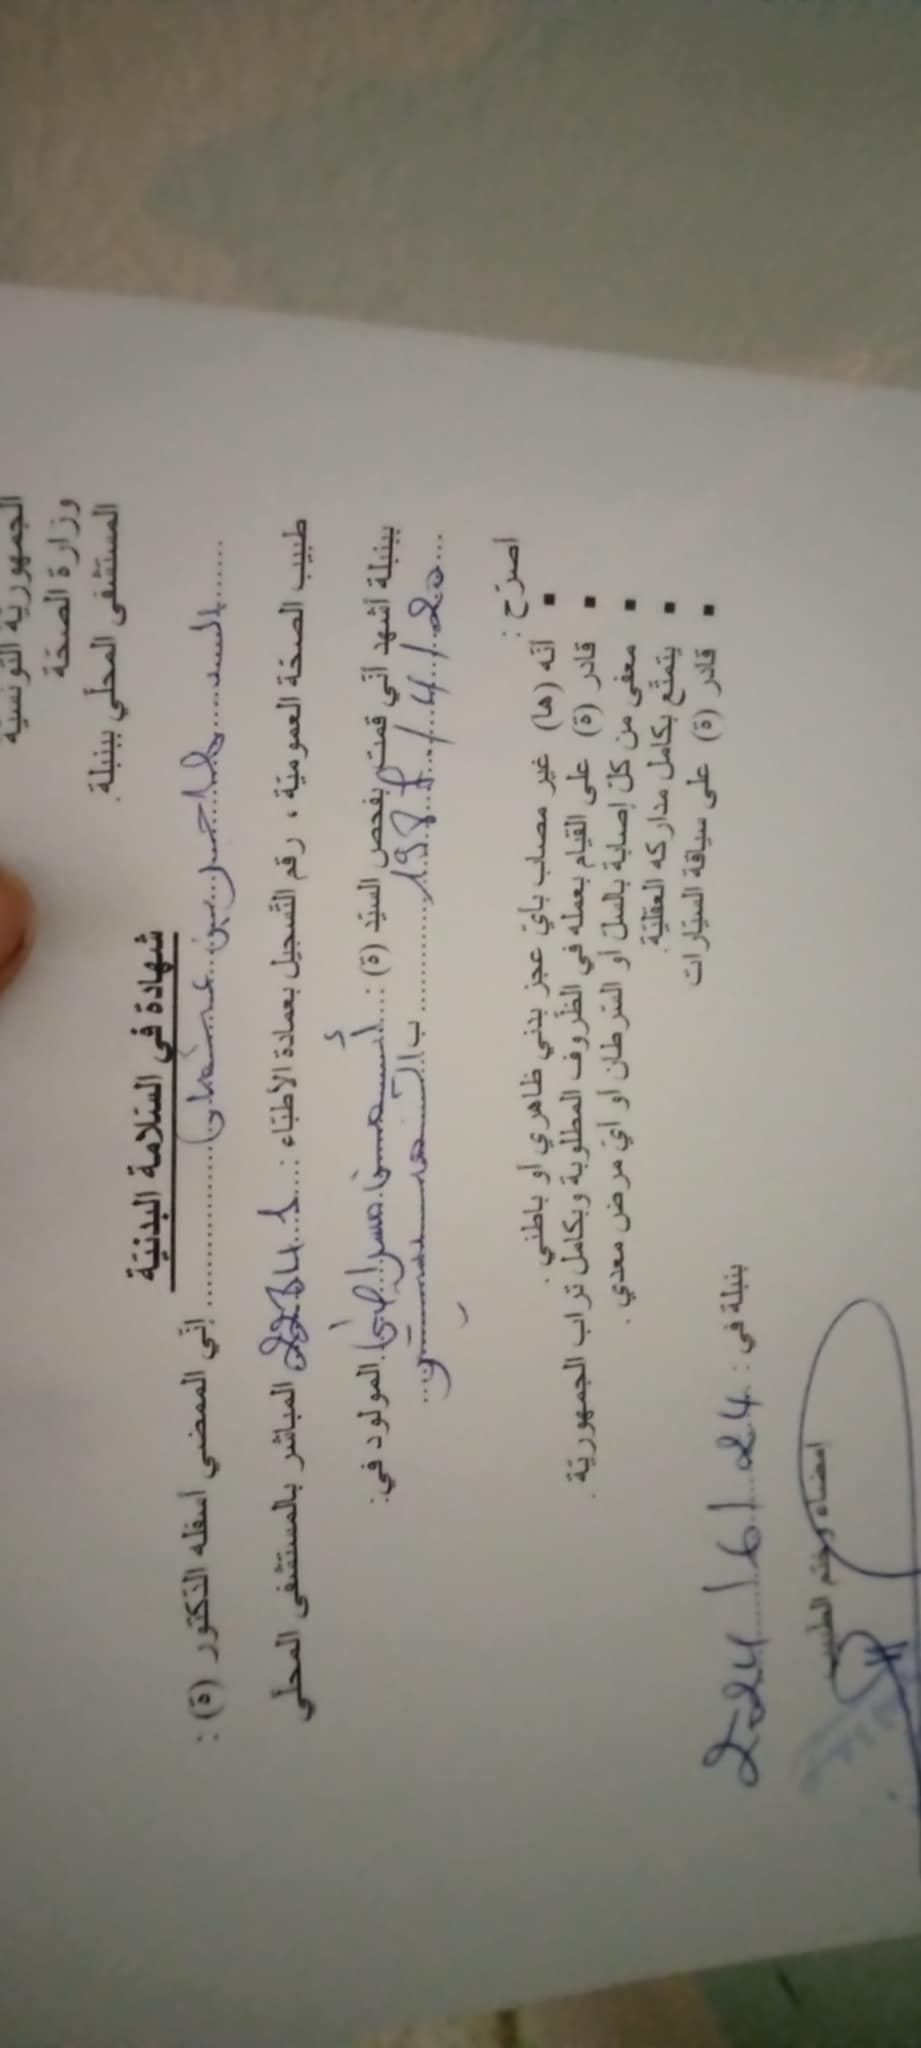 الجمهورية التونسية
وزارة الصحة
المستشفى المحلي ببنبلة.
شهادة في السلامة البدنية
إني الممضي أسفله الدكتور (ة) : السيد
طبيب الصحة العمومية ، رقم التسجيل بعمادة الأطباء : المباشر بالمستشفى المحلي
ببنبلة أشهد أني قمت بفحص السيد (ة) : المولود في:
1987/4/20 ب
أصرّح :
▪ أنه (ها) غير مصاب بأي عجز بدني ظاهري أو باطني .
▪ قادر (ة) على القيام بعمله في الظروف المطلوبة وبكامل تراب الجمهورية .
▪ معفى من كل إصابة بالسل أو السرطان او اي مرض معدي .
▪ يتمتع بكامل مداركه العقلية.
▪ قادر (ة) على سياقة السيارات
بنبلة في : 224/6/24
إمضاء وختم الطبيب